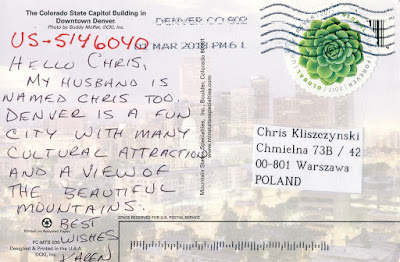 The Colorado State Capitol Building in
Downtown Denver.
Photo by Buddy Moffet, ISCRI, Inc.
US-5146040
DENVER CO 802
01 MAR 2018 PM 6 L
HELLO CHRIS,
MY HUSBAND IS
NAMED CHRIS TOO.
DENVER IS A FUN
CITY WITH MANY
CULTURAL ATTRACTION
AND A VIEW OF
THE BEAUTIFUL
MOUNTAINS.
BEST
WISHES
KAREN
Printed on Recycled Paper
Designed & Printed in the U.S.A.
Mountain States Specialties, Inc., Boulder, Colorado
FOREVER
GLOBAL
2017
Chris Kliszczynski
Chmielna 73B / 42
00-801 Warszawa
POLAND
SPACE RESERVED FOR U.S. POSTAL SERVICE